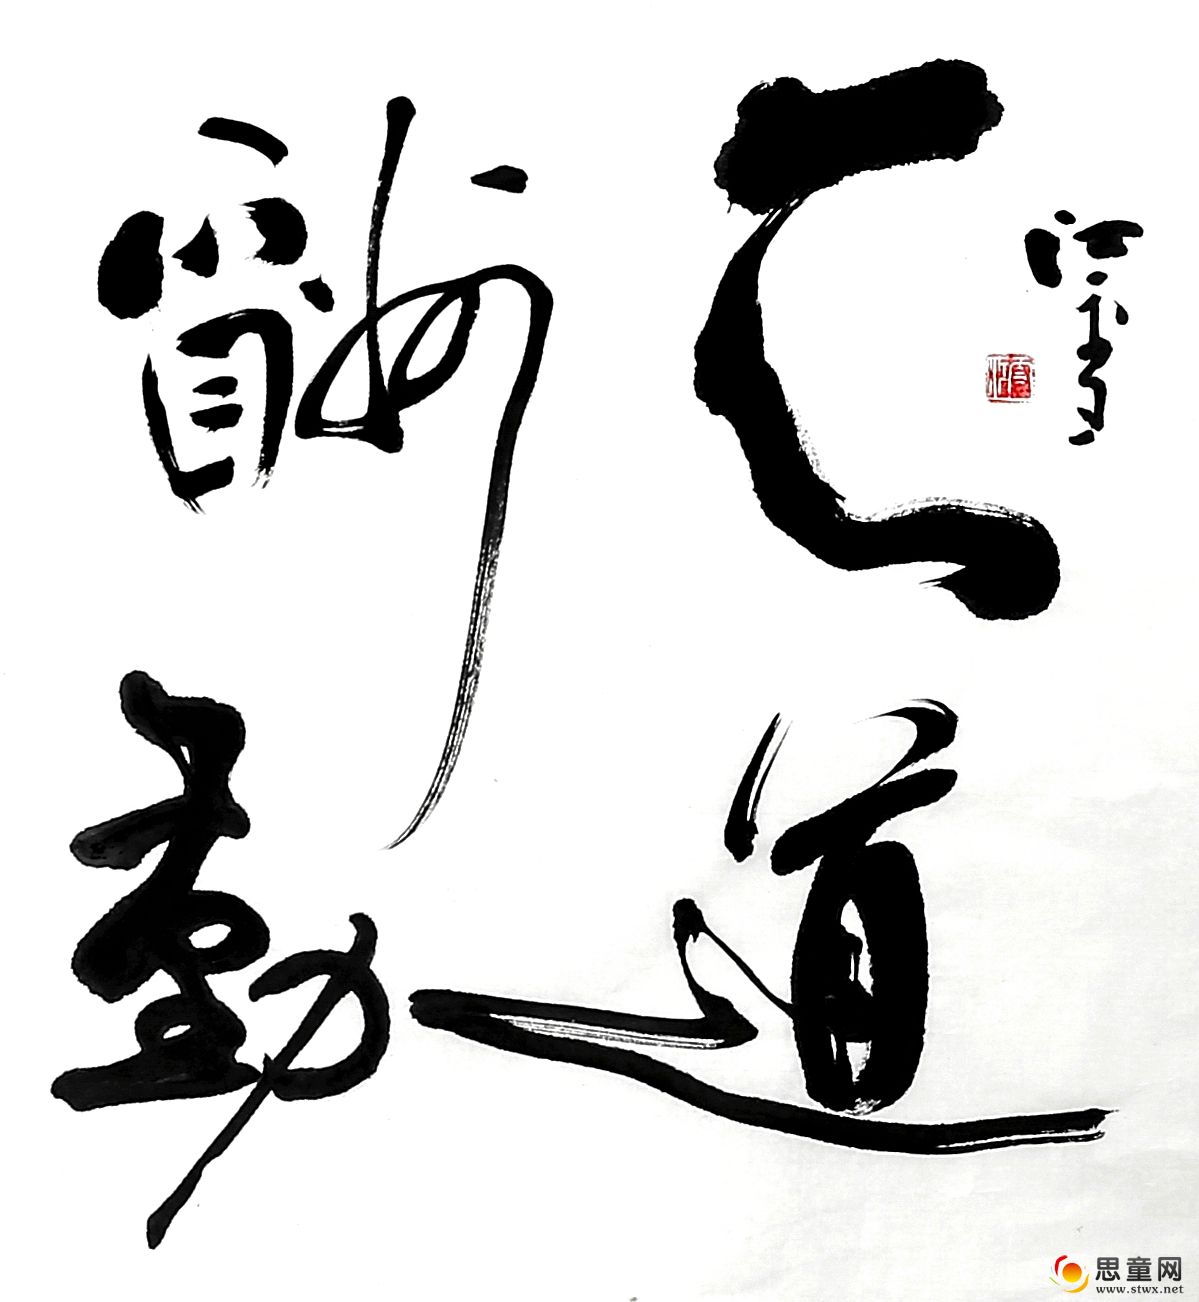 天道
酬勤
思童网
www.stwx.net